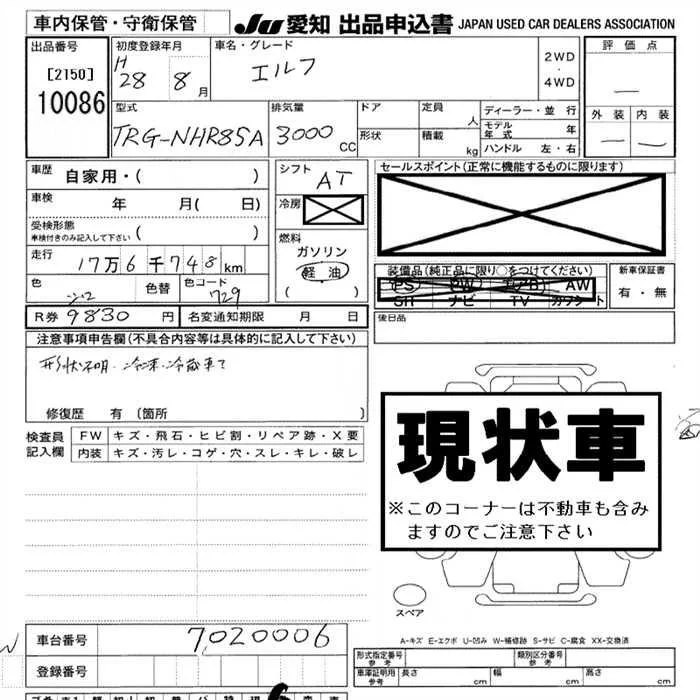 車内保管・守衛保管 JU 愛知 出品申込書 JAPAN USED CAR DEALERS ASSOCIATION
出品番号 初度登録年月 車名・グレード 2WD・4WD 評価点
[2150] H 28 8月 エルフ
10086 —
型式 排気量 ドア 定員 人 ディーラー・並行 外装 内装
TRG-NHR85A 3000 CC 形状 積載 kg モデル年式 年 — —
ハンドル 左・右
車歴 自家用・( ) シフト AT セールスポイント(正常に機能するものに限ります)
車検 年 月( 日) 冷房
受検形態 ( )
車検付きのみ記入して下さい
燃料
走行 17万6千748km ガソリン
軽油
( )
装備品(純正品に限り○をつけてください) 新車保証書
色 シロ 色替 色コード 729
PS PW エアB AW 有・無
SR ナビ TV カワシート
R券 9830円 名変通知期限 月 日 後日品
注意事項申告欄(不具合内容等は具体的に記入して下さい)
形状不明・冷凍・冷蔵車て
修復歴 有 〔箇所 〕
検査員記入欄 FW キズ・飛石・ヒビ割・リペア跡・X要
内装 キズ・汚レ・コゲ・穴・スレ・キレ・破レ
現状車
※このコーナーは不動車も含み
ますのでご注意下さい
スペア
A-キズ E-エクボ U-凹み W-補修跡 S-サビ C-腐食 XX-交換済
車台番号 7020006
登録番号
形式指定番号 参考 類別区分番号 参考
車庫証明用 参考 長さ cm 幅 cm 高さ cm